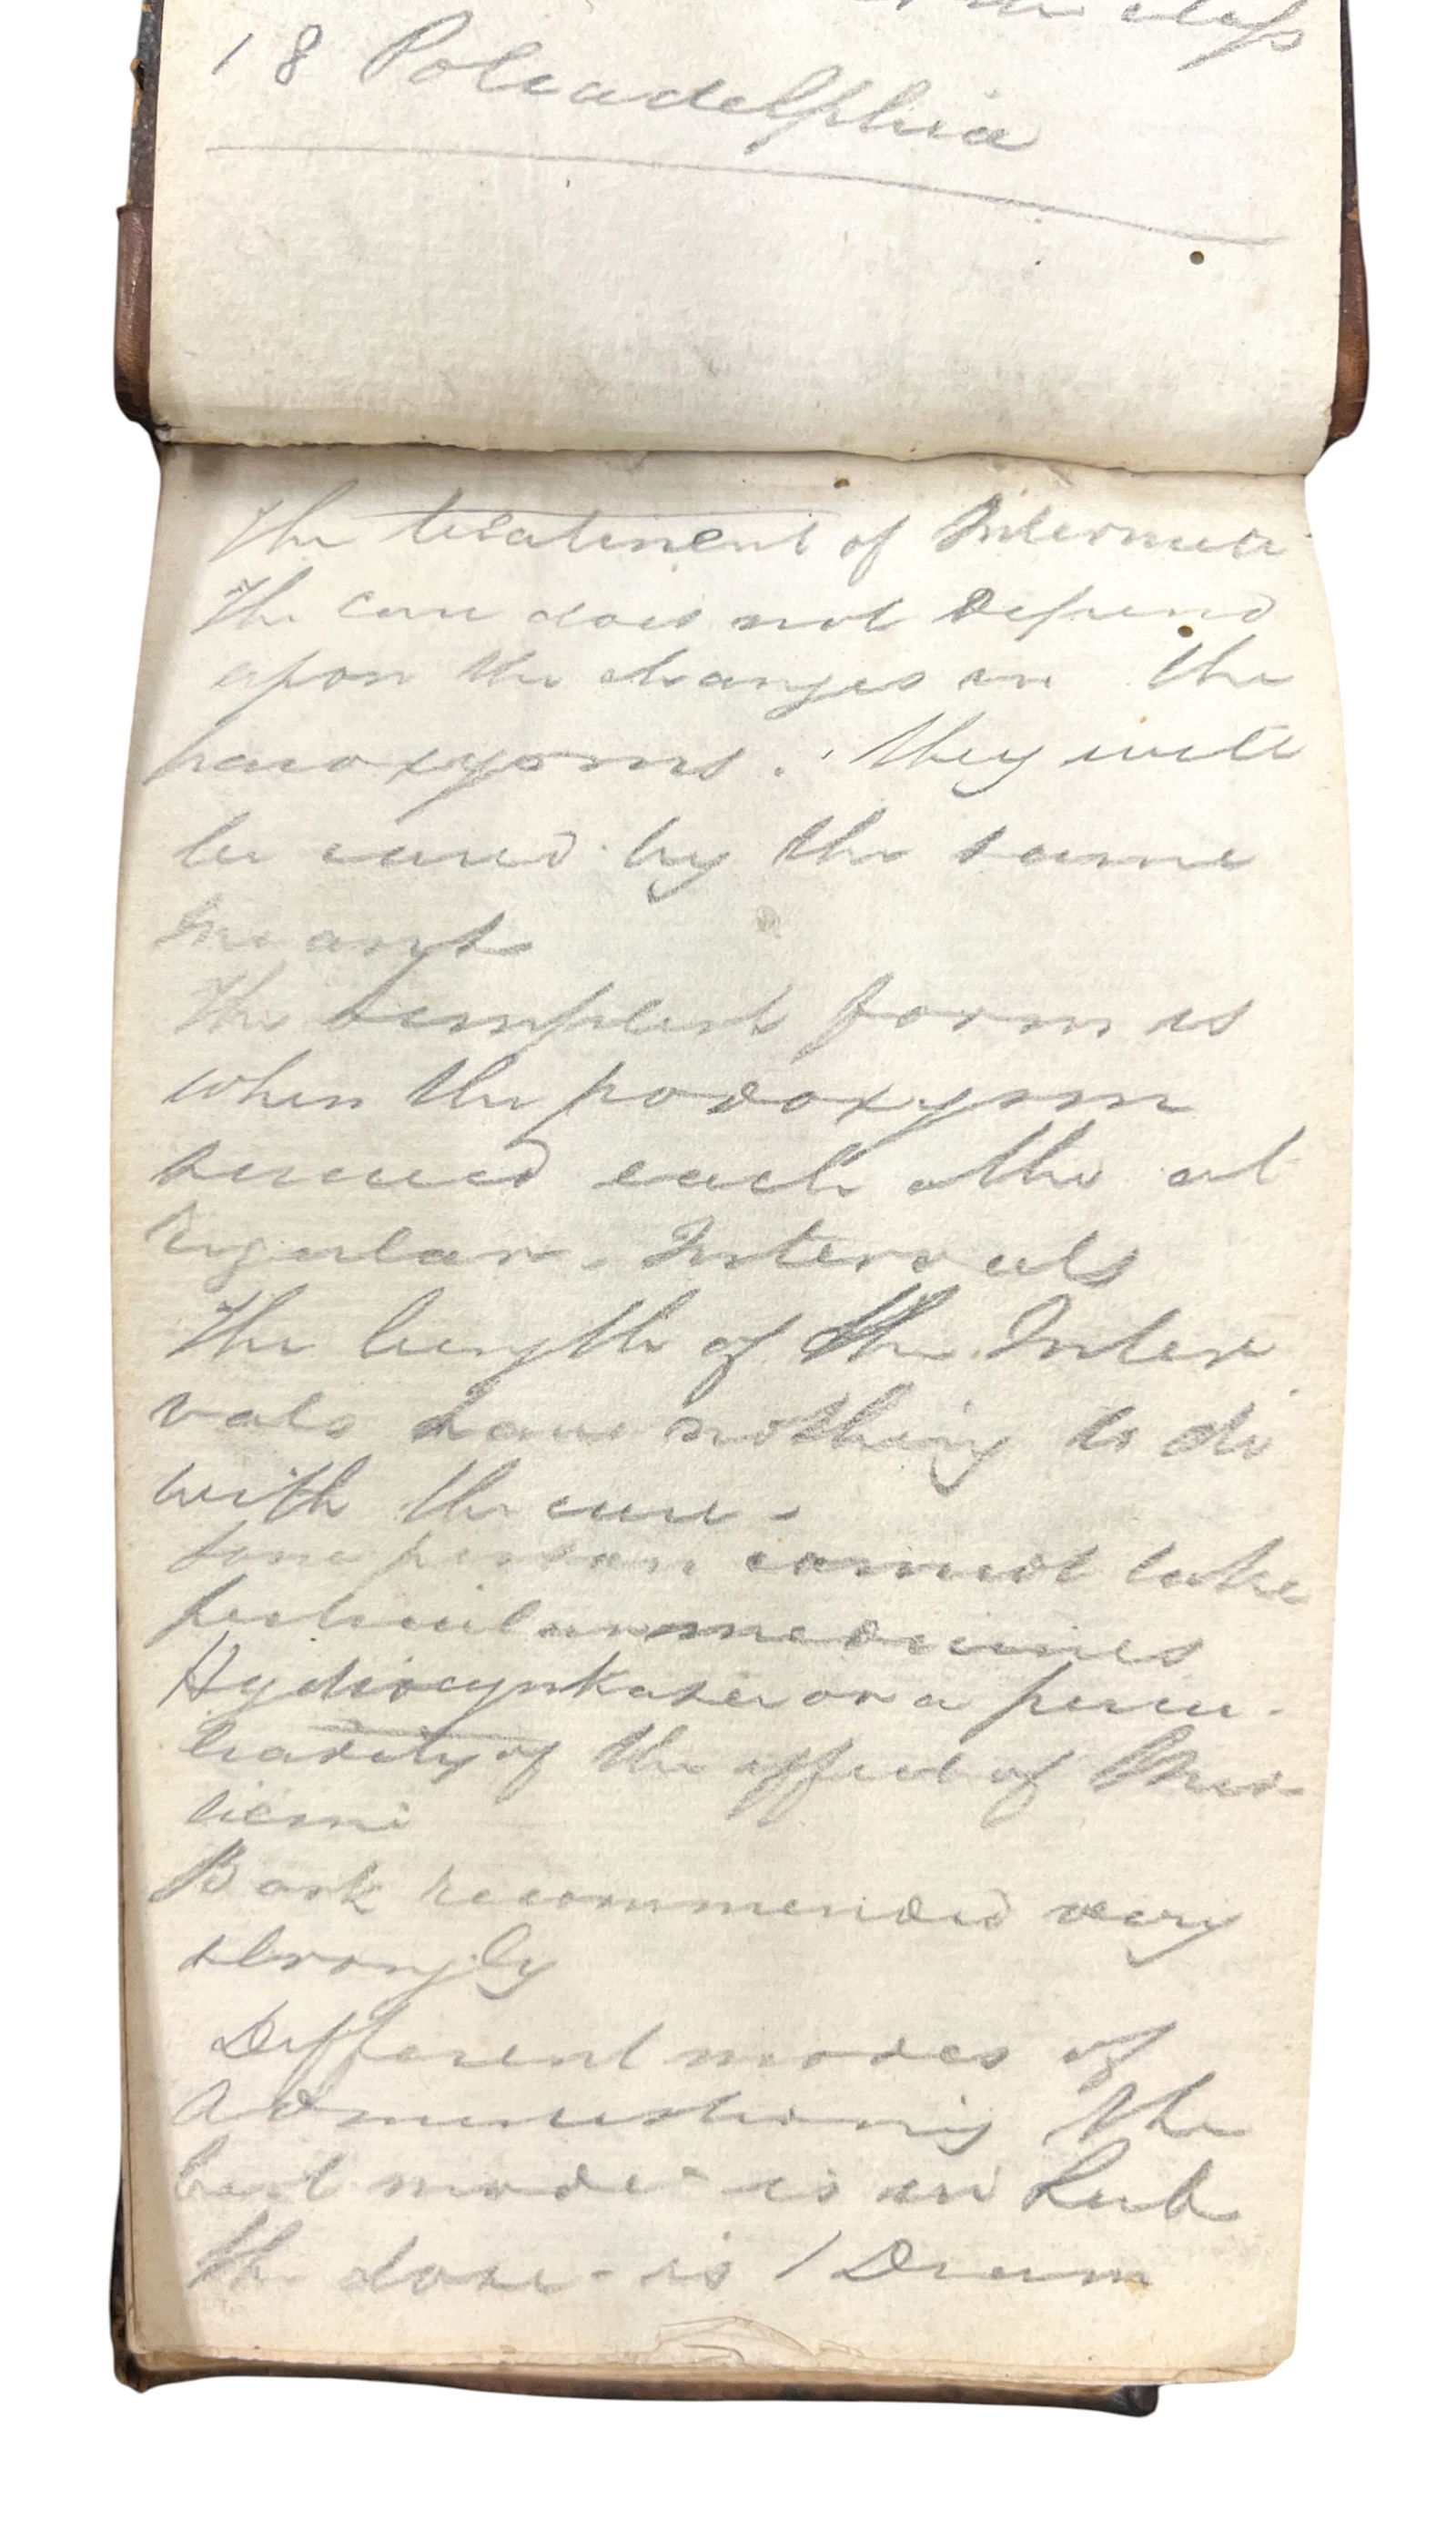 the class
18 Poliadelphia
The treatment of Intermitt
The cure does not Depend
upon the changes in the
paroxysms. they will
be cured by the same
means
The simplest form is
when the paroxysm
succeed each othe at
regular Intervals
The length of the Inter
vals have nothing to do
with the cure -
Some person cannot take
perticular medicines
or a pecu-
liarity of the effect of Med-
icine
Bark recommended very
strongly
Different modes of
Administering the
best mode is in Sub
the dose - is 1 Dram